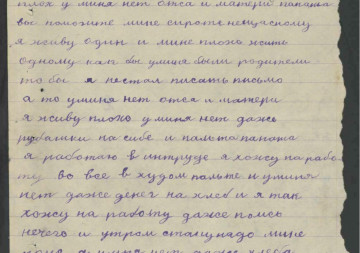 плох у миня нет отса и матери
вас поможите мине сироте нещасному
я живу один и мине плохо жить
одному как бы уминя были родители
то бы я нестал писать письмо
а то уминя нет отса и матери
я живу плохо у миня нет даже
рубашки на сибе и пальта
я работаю в интруде я хожу на рабо
ту во все в худом пальте и уминя
нет даже денег на хлеб и я так
хожу на работу даже поись
нечего и утром мине
а уминя нет даже хлеба